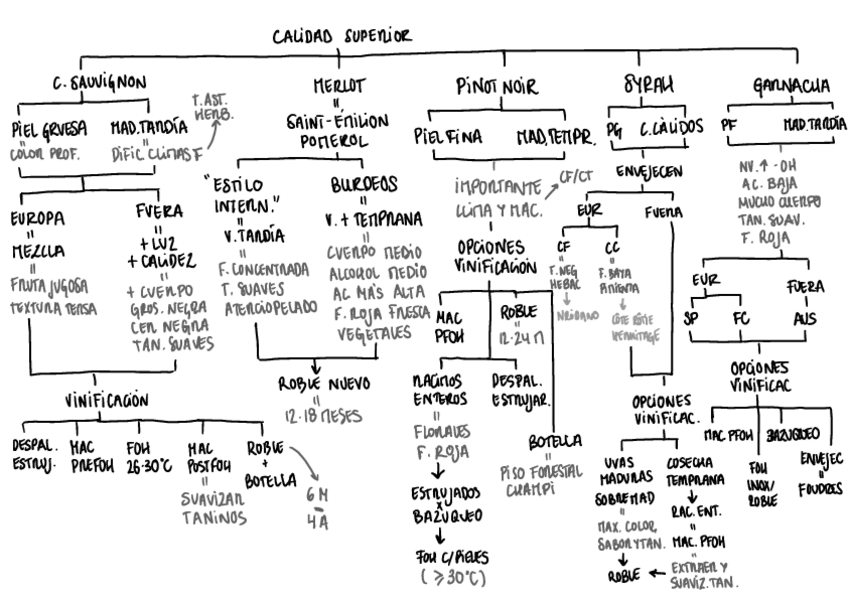 CALIDAD SUPERIOR
C. SAUVIGNON
PIEL GRUESA
=
COLOR PROF.
MAD. TARDÍA
=
DIFIC. CLIMAS F
T. AST.
HERB.
EUROPA
=
MEZCLA
=
FRUTA JUGOSA
TEXTURA TERSA
FUERA
=
+ LUZ
+ CALIDEZ
=
+ CUERPO
GROS. NEGRA
CER NEGRA
TAN. SUAVES
VINIFICACIÓN
DESPAL.
ESTRUJ.
MAC
PREFOH
FOH
26-30°C
MAC
POSTFOH
=
SUAVIZAR
TANINOS
ROBLE
+
BOTELLA
6 M
-
4 A
MERLOT
=
SAINT-ÉMILION
POMEROL
"ESTILO
INTERN."
=
V. TARDÍA
=
F. CONCENTRADA
T. SUAVES
ATERCIOPELADO
BURDEOS
=
V. + TEMPRANA
=
CUERPO MEDIO
ALCOHOL MEDIO
AC MÁS ALTA
F. ROJA FRESCA
VEGETALES
ROBLE NUEVO
=
12-18 MESES
PINOT NOIR
PIEL FINA
MAD. TEMPR.
IMPORTANTE
CLIMA Y MAC.
CF/CT
OPCIONES
VINIFICACIÓN
MAC
PFOH
ROBLE
=
12-24 M
RACIMOS
ENTEROS
=
FLORALES
F. ROJA
ESTRUJADOS
x
BAZUQUEO
FOH C/PIELES
(⩾30°C)
DESPAL.
ESTRUJAR.
BOTELLA
=
PISO FORESTAL
CHAMPI
SYRAH
PG
C. CÁLIDOS
ENVEJECEN
EUR
FUERA
CF
=
P. NEG
HERBAC
CC
=
F. BAYA
PIMIENTA
CÔTE RÔTIE
HERMITAGE
OPCIONES
VINIFICAC.
UVAS
MADURAS
SOBREMAD
=
MAX. COLOR,
SABOR Y TAN.
ROBLE
COSECHA
TEMPRANA
RAC. ENT.
MAC. PFOH
=
EXTRAER Y
SUAVIZ. TAN.
GARNACHA
PF
MAD. TARDÍA
NV. ↑ -OH
AC. BAJA
MUCHO CUERPO
TAN. SUAV.
F. ROJA
EUR
SP
FC
FUERA
=
AUS
OPCIONES
VINIFICAC
MAC PFOH
FOH
INOX/
ROBLE
BAZUQUEO
ENVEJEC
=
FOUDRES